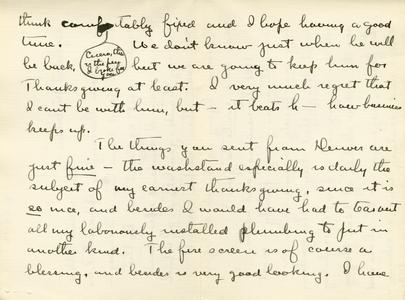 think comfortably fixed and I hope having a good
time. We don't know just when he will
be back, but we are going to keep him for
Thanksgiving at least. I very much regret that
I can't be with him, but — it beats h— how business
keeps up.
The things you sent from Denver are
just fine — the washstand especially is daily the
subject of my earnest thanksgiving, since it is
so nice, and besides I would have had to tear out
all my laboriously installed plumbing to put in
another kind. The fire screen is of course a
blessing, and besides is very good looking. I have